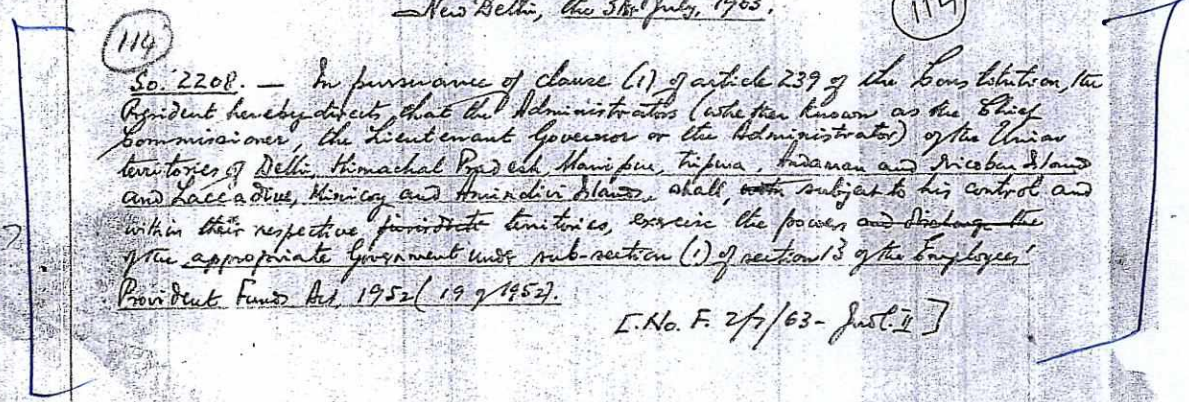 New Delhi, the 31st July, 1963.
114
114
So. 2208. — In pursuance of clause (1) of article 239 of the Constitution, the
President hereby directs that the Administrators (whether known as the Chief
Commissioner, the Lieutenant Governor or the Administrator) of the Union
territories of Delhi, Himachal Pradesh, Manipur, Tripura, Andaman and Nicobar Island
and Laccadive, Minicoy and Amindivi Islands, shall, subject to his control and
within their respective territories, exercise the powers and discharge the
of the appropriate Government under sub-section (1) of section 13 of the Employees'
Provident Funds Act, 1952 (19 of 1952).
[.No. F. 2/7/63 - Judl. II]